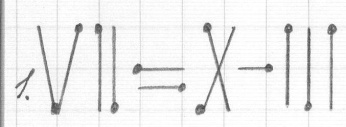 1. VII = X - III